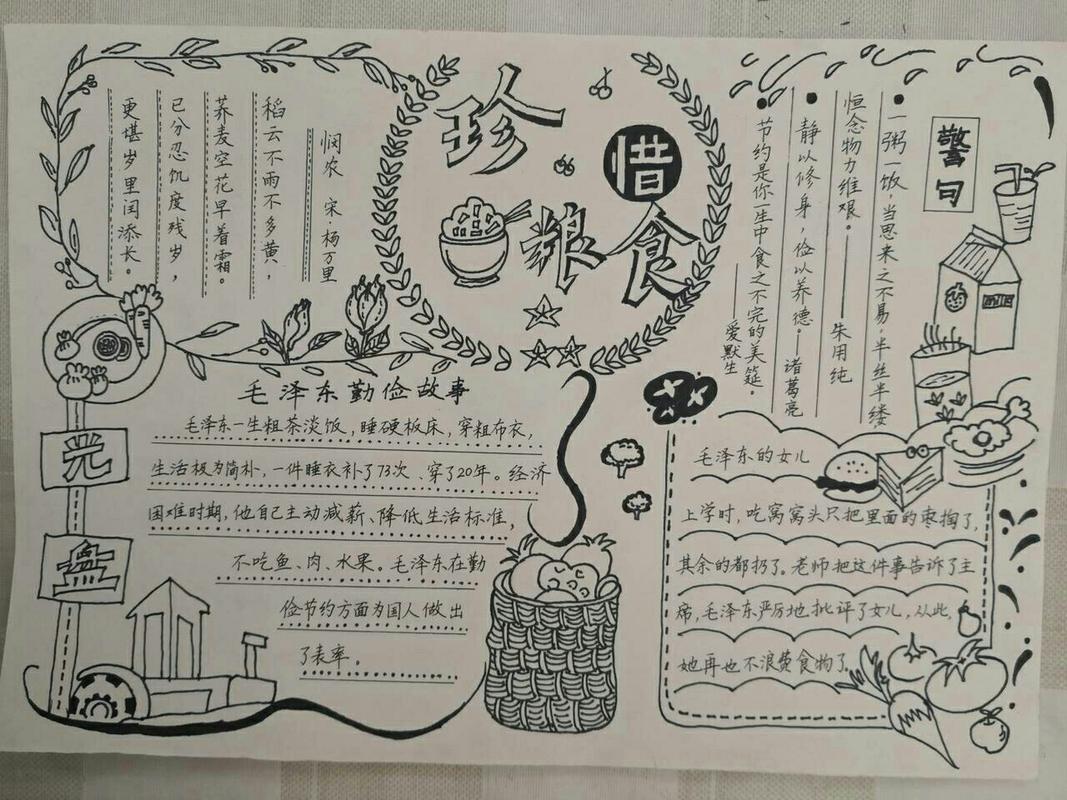 珍惜粮食
悯农 宋 杨万里
稻云不雨不多黄，
荞麦空花早着霜。
已分忍饥度残岁，
更堪岁里闰添长。
警句
一粥一饭，当思来之不易，半丝半缕
恒念物力维艰。——朱用纯
静以修身，俭以养德——诸葛亮
节约是你一生中食之不完的美筵。
——爱默生
光
盘
毛泽东勤俭故事
毛泽东一生粗茶淡饭，睡硬板床，穿粗布衣，
生活极为简朴，一件睡衣补了73次、穿了20年。经济
国难时期，他自己主动减薪、降低生活标准，
不吃鱼、肉、水果。毛泽东在勤
俭节约方面为国人做出
了表率。
毛泽东的女儿
上学时，吃窝窝头只把里面的枣掏了，
其余的都扔了。老师把这件事告诉了主
席，毛泽东严厉地批评了女儿，从此，
她再也不浪费食物了。